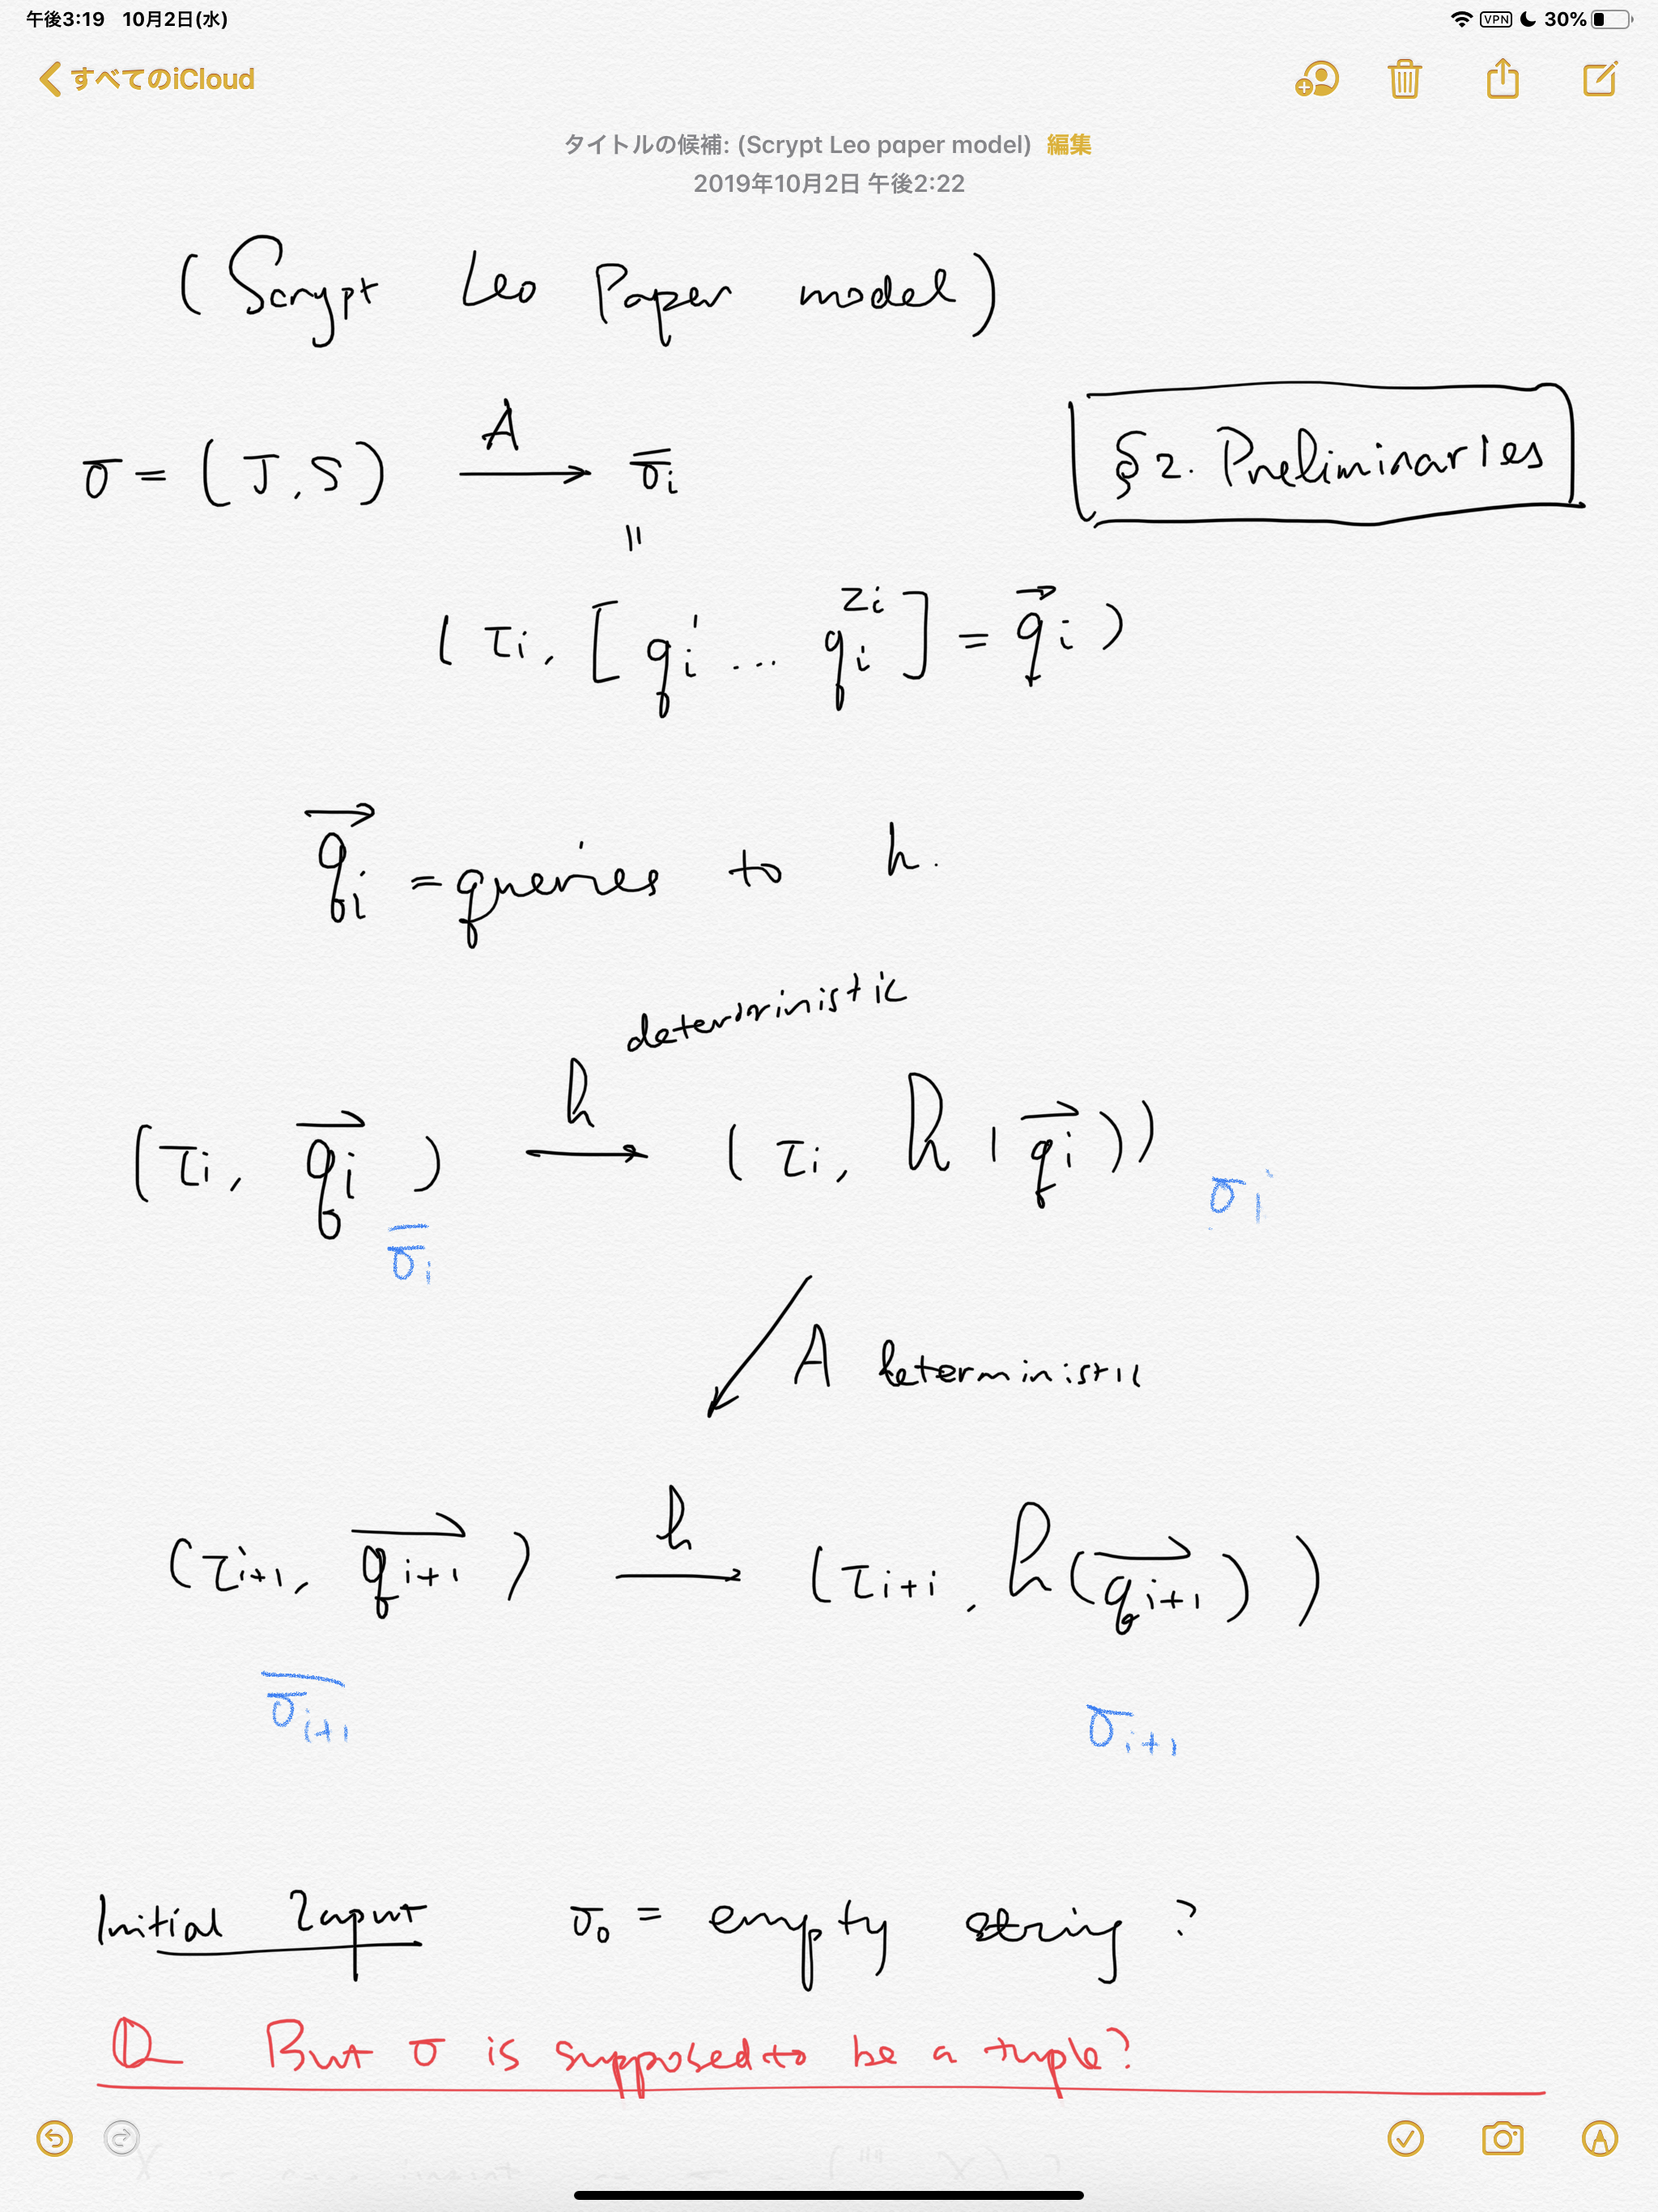 午後3:19 10月2日(水) VPN 30%
すべてのiCloud
タイトルの候補: (Scrypt Leo paper model) 編集
2019年10月2日 午後2:22
(Scrypt Leo Paper model)
§2. Preliminaries
σ = (J, S) A→ σ̄i
=
(τi, [qi^1 ... qi^zi] = q⃗i)
q⃗i = queries to h.
deterministic
(τi, q⃗i) h→ (τi, h(q⃗i))
σ̄i σi
A deterministic
(τi+1, q⃗i+1) h→ (τi+i, h(q⃗i+1))
σ̄i+1 σi+1
Initial Input σ0 = empty string ?
Q But σ is supposed to be a tuple?